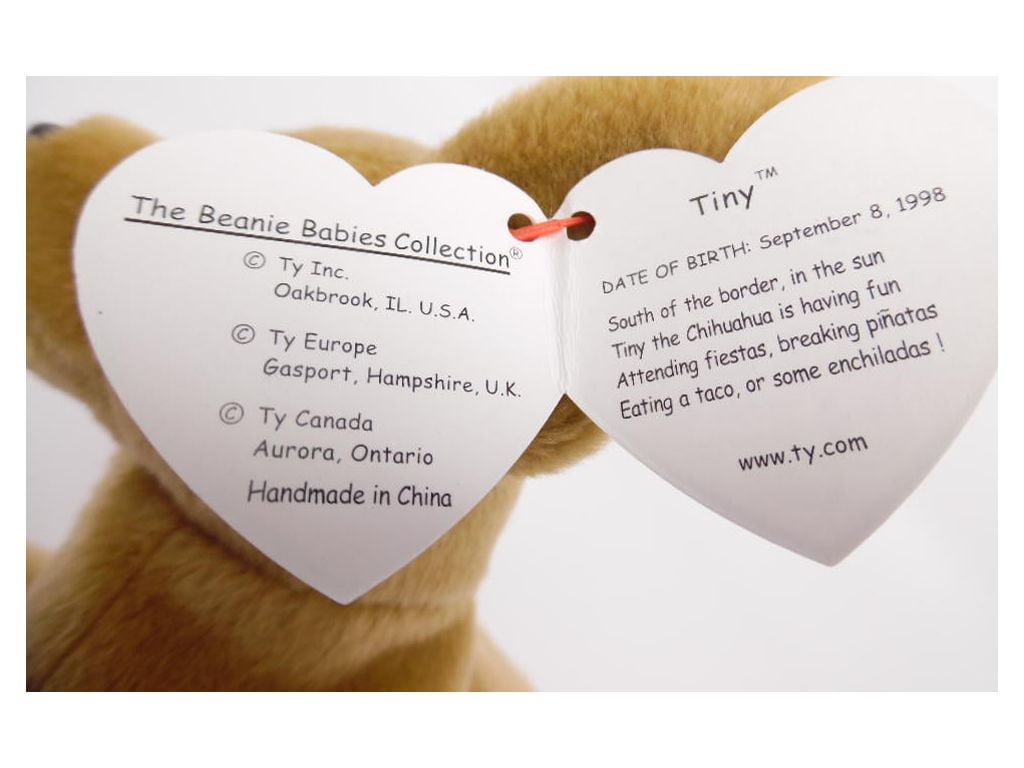 The Beanie Babies Collection®
© Ty Inc.
Oakbrook, IL. U.S.A.
© Ty Europe
Gasport, Hampshire, U.K.
© Ty Canada
Aurora, Ontario
Handmade in China
Tiny™
DATE OF BIRTH: September 8, 1998
South of the border, in the sun
Tiny the Chihuahua is having fun
Attending fiestas, breaking piñatas
Eating a taco, or some enchiladas !
www.ty.com